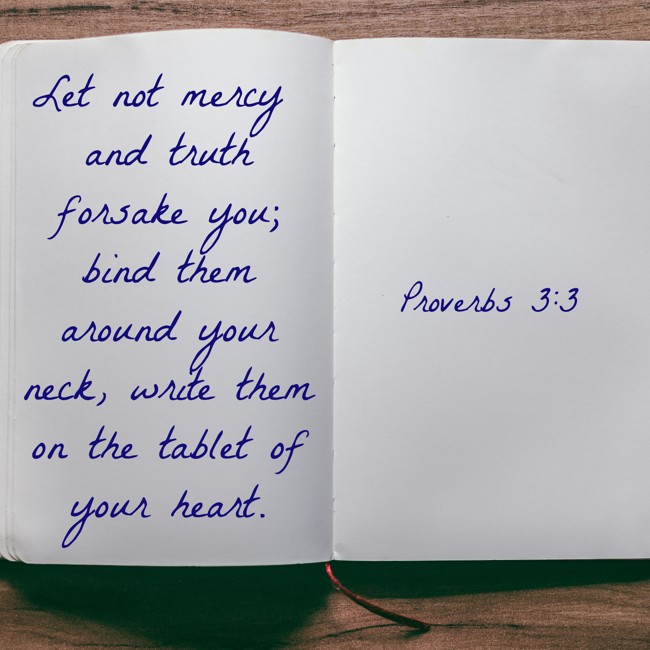 Let not mercy
and truth
forsake you;
bind them
around your
neck, write them
on the tablet of
your heart.
Proverbs 3:3